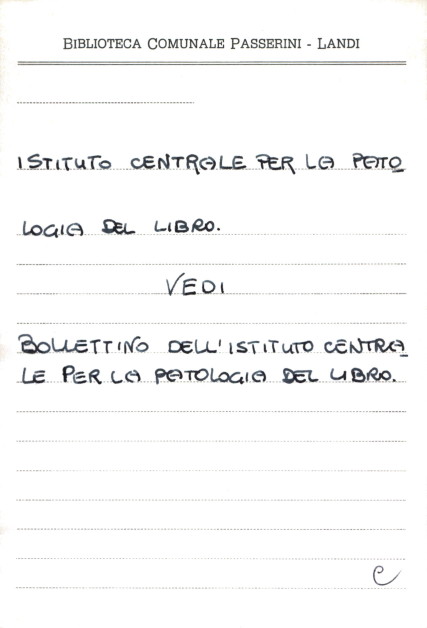 BIBLIOTECA COMUNALE PASSERINI - LANDI
ISTITUTO CENTRALE PER LA PATO_
LOGIA DEL LIBRO.
VEDI
BOLLETTINO DELL'ISTITUTO CENTRA_
LE PER LA PATOLOGIA DEL LIBRO.
C